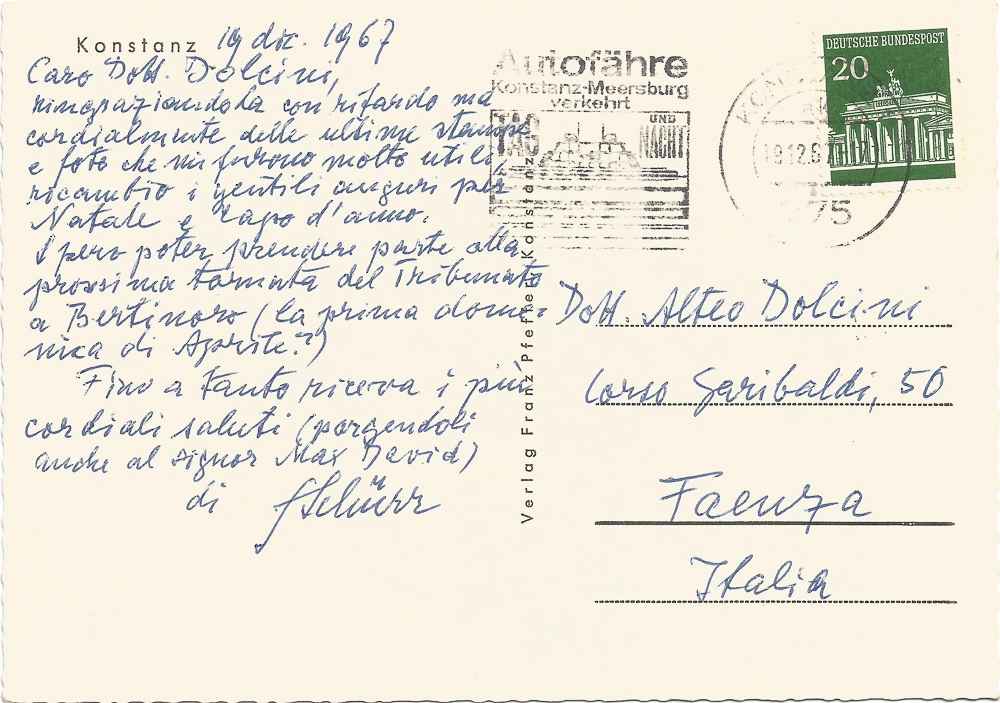 Konstanz 19 dic. 1967
Caro Dott. Dolcini,
ringraziandoLa con ritardo ma
cordialmente delle ultime stampe
e foto che mi furono molto utili
ricambio i gentili auguri per
Natale e Capo d'anno.
Spero poter prendere parte alla
prossima tornata del Tribunato
a Bertinoro (la prima dome-
nica di Aprile?)
Fino a tanto riceva i più
cordiali saluti (porgendoli
anche al signor Max David)
di FSchürr
Verlag Franz Pfeffer, Konstanz
Autofähre
Konstanz-Meersburg
verkehrt
TAG UND NACHT
19.12.67
775
DEUTSCHE BUNDESPOST
20
Dott. Alteo Dolcini
Corso Garibaldi, 50
Faenza
Italia